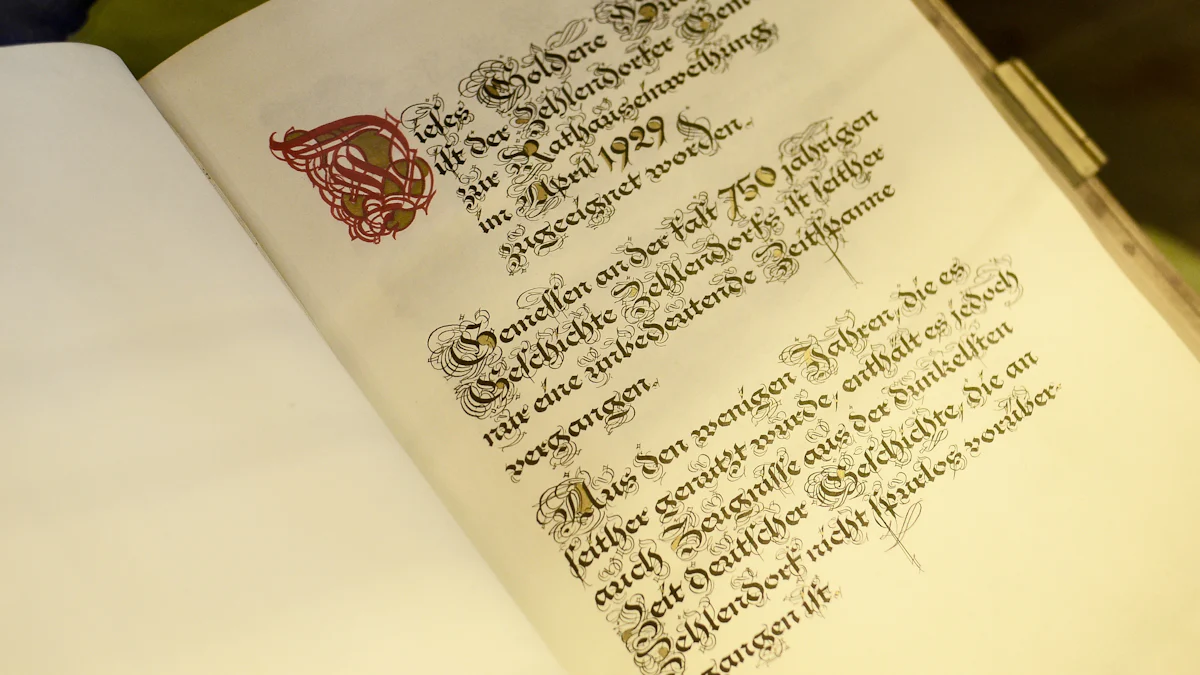 Dieses Goldene Buch
ist der Zehlendorfer Gem
zur Rathauseinweihung
im April 1929
zugeeignet worden.
Gemessen an der fast 750 jährigen
Geschichte Zehlendorfs ist seither
nur eine unbedeutende Zeitspanne
vergangen.
Aus den wenigen Jahren, die es
seither genutzt wurde, enthält es jedoch
auch Zeugnisse aus der dunkelsten
Zeit deutscher Geschichte, die an
Zehlendorf nicht spurlos vorüber-
gangen ist